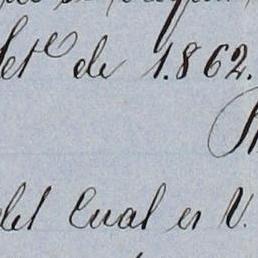 Set^e de 1.862.
del Cual es V.